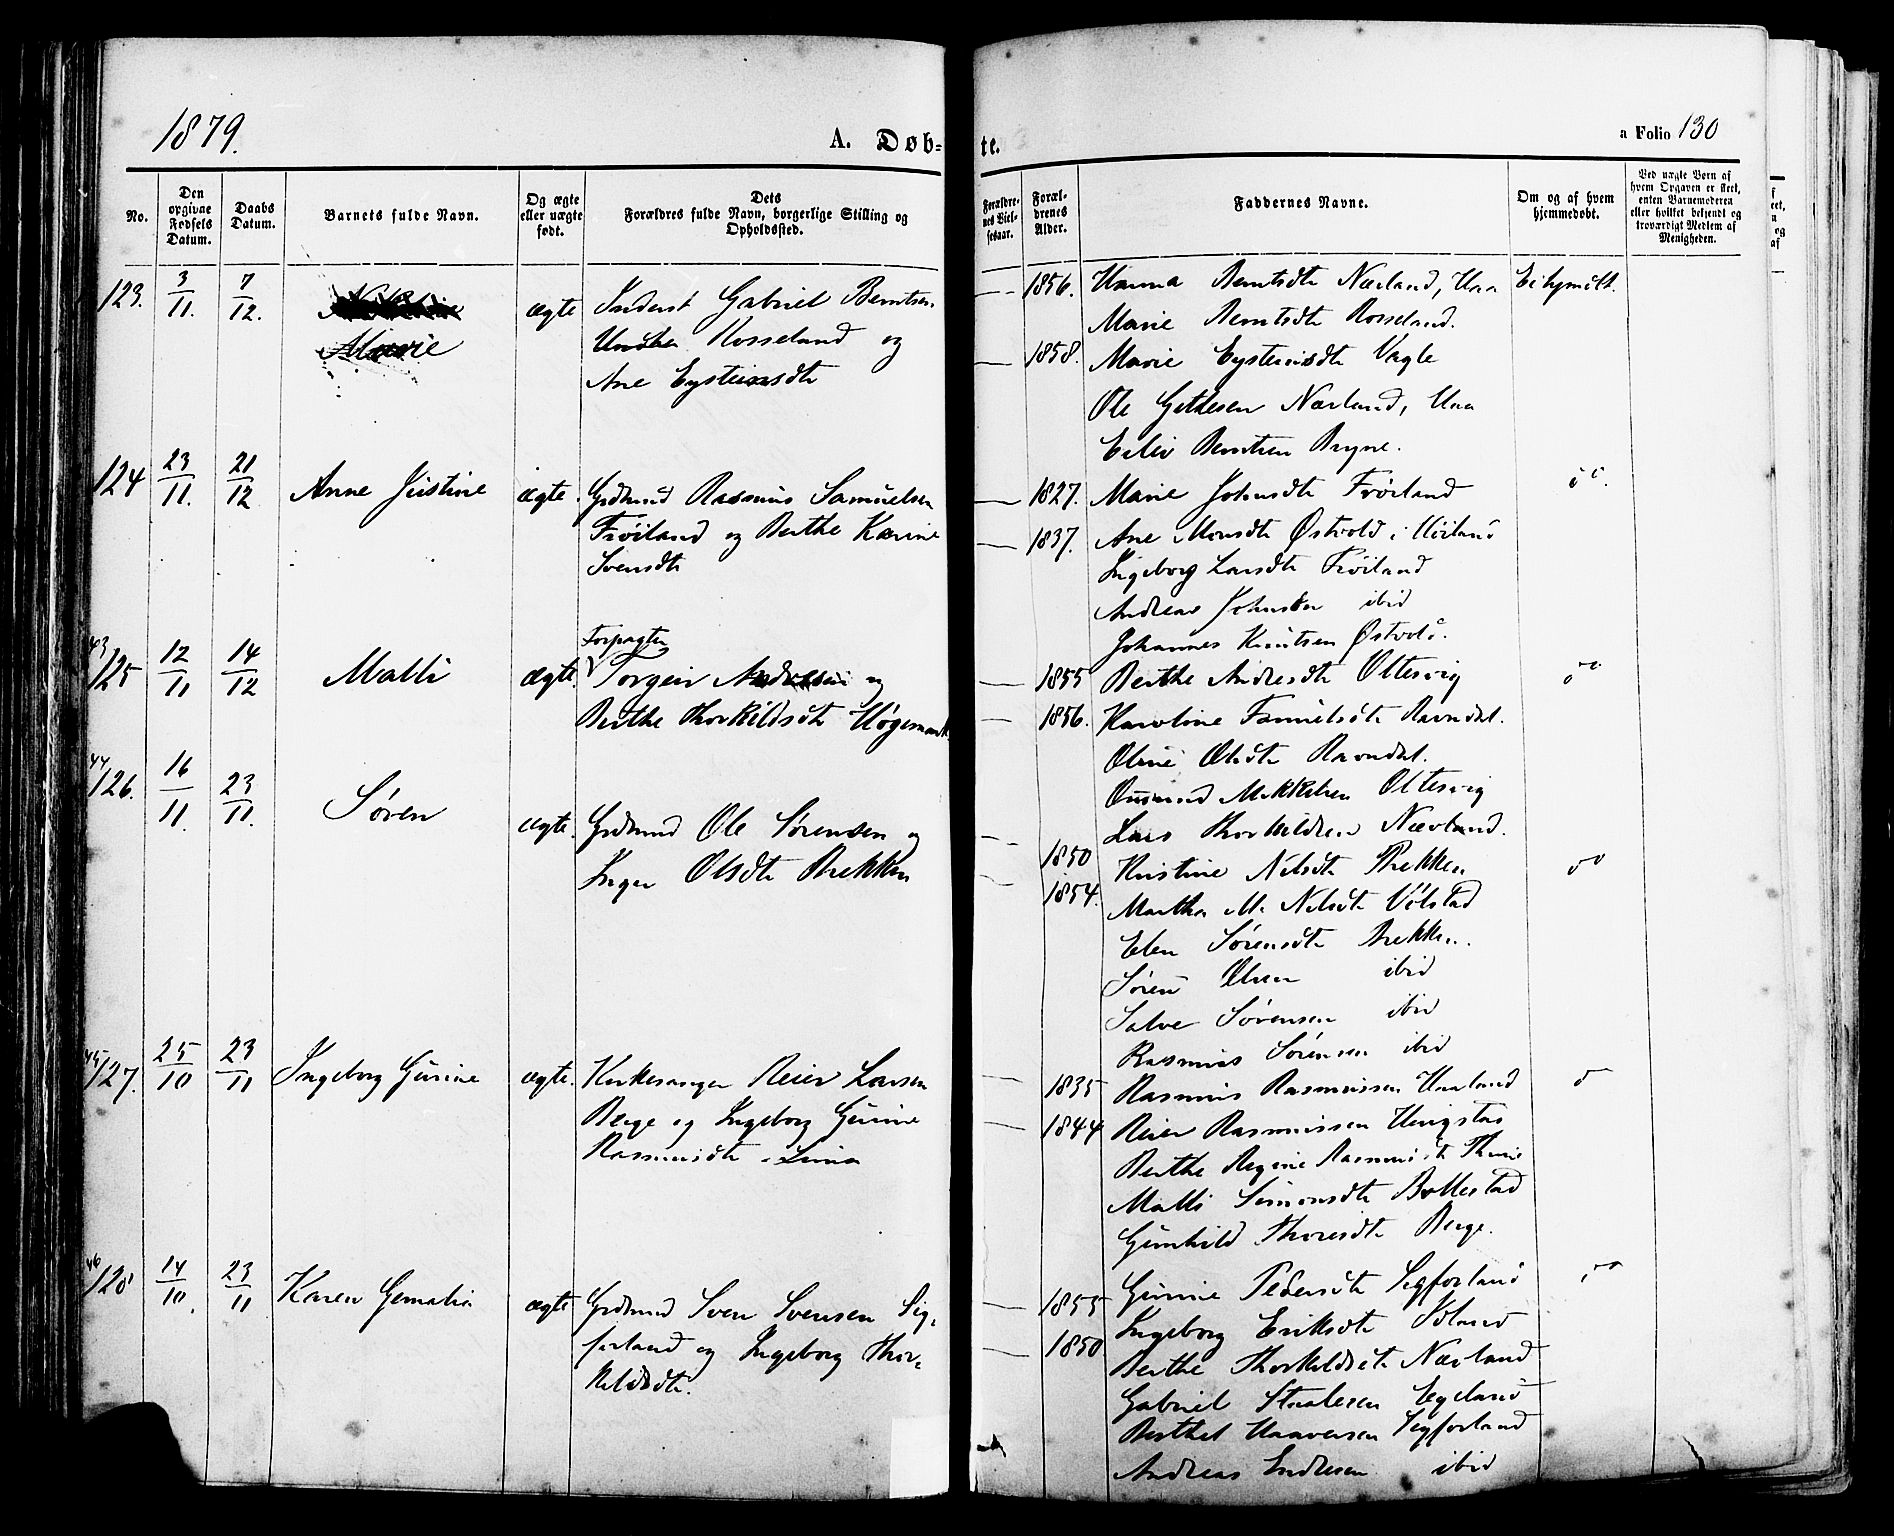 1879.
A. Døb=
te.
a Folio 130
No.
Den opgivne Fødsels Datum.
Daabs Datum.
Barnets fulde Navn.
Og ægte eller uægte født.
Dets Forældres fulde Navn, borgerlige Stilling og Opholdssted.
Forældrenes Vielsesaar.
Forældrenes Alder.
Faddernes Navne.
Om og af hvem hjemmedøbt.
Ved uægte Børn af hvem Opgaven er skeet, enten Barnemoderen eller hvilket bekjendt og troværdigt Medlem af Menigheden.
123. 3/11. 7/12. Marie ægte Inderst Gabriel Berntsen
Rosseland og
Ane Eysteinsdtr
1856.
1858.
Hanna Berntsdtr Nærland, Haa
Marie Berntsdtr Rosseland.
Marie Eysteinsdtr Vagle
Ole Nærland, Haa
Eiliv Berntsen Bryne.
124 23/11. 21/12 Anne Justine ægte. Grdmnd Rasmus Samuelsen
Frøiland og Berthe Karine
Svensdtr
1827.
1837.
Marie Johnsdtr Frøiland
Ane Monsdtr Østvold i Høiland
Ingeborg Larsdtr Frøiland
Andreas Johnsen ibid
Johannes Knutsen Østvold.
43
125 12/11 14/12 Malli ægte. Forpagter
Torgeir og
Berthe Thorkildsdtr Høgemork
1855
1856.
Berthe Andresdtr Oltesvig
Karoline Ravndal.
Oline Olsdtr Ravndal.
Mikkelsen Oltesvig
Lars Thorkildsen Nærland.
44
126. 16/11. 23/11. Søren ægte. Grdmnd Ole Sørensen og
Inger Olsdtr Brekken
1850
1854.
Kristine Nilsdtr Brekken
Martha M. Nilsdtr Vølstad
Elen Sørensdtr Brekken.
Søren Olsen ibid
Salve Sørensen ibid
Rasmus Sørensen ibid
45
127. 25/10 23/11 Ingeborg Gurine ægte. Kirkesanger Reier Larsen
Berge og Ingeborg Gurine
Rasmusdtr i Lima
1835
1844
Rasmus Rasmussen Haaland
Reier Rasmussen Hengstad
Berthe Regine Rasmusdtr Thime
Malli Simonsdtr Bollestad
Gunhild Thoresdtr Berge.
46
128 14/10. 23/11 Karen Gemalia ægte Grdmnd Sven Svensen Sig=
forland og Ingeborg Thor=
kildsdtr.
1855
1850
Gurine Pedersdtr Segforland
Ingeborg Eriksdtr
Berthe Thorkildsdtr Nærland
Gabriel Staalesen Egeland
Berthel Haaversen Segforland
Andreas Endresen ibid